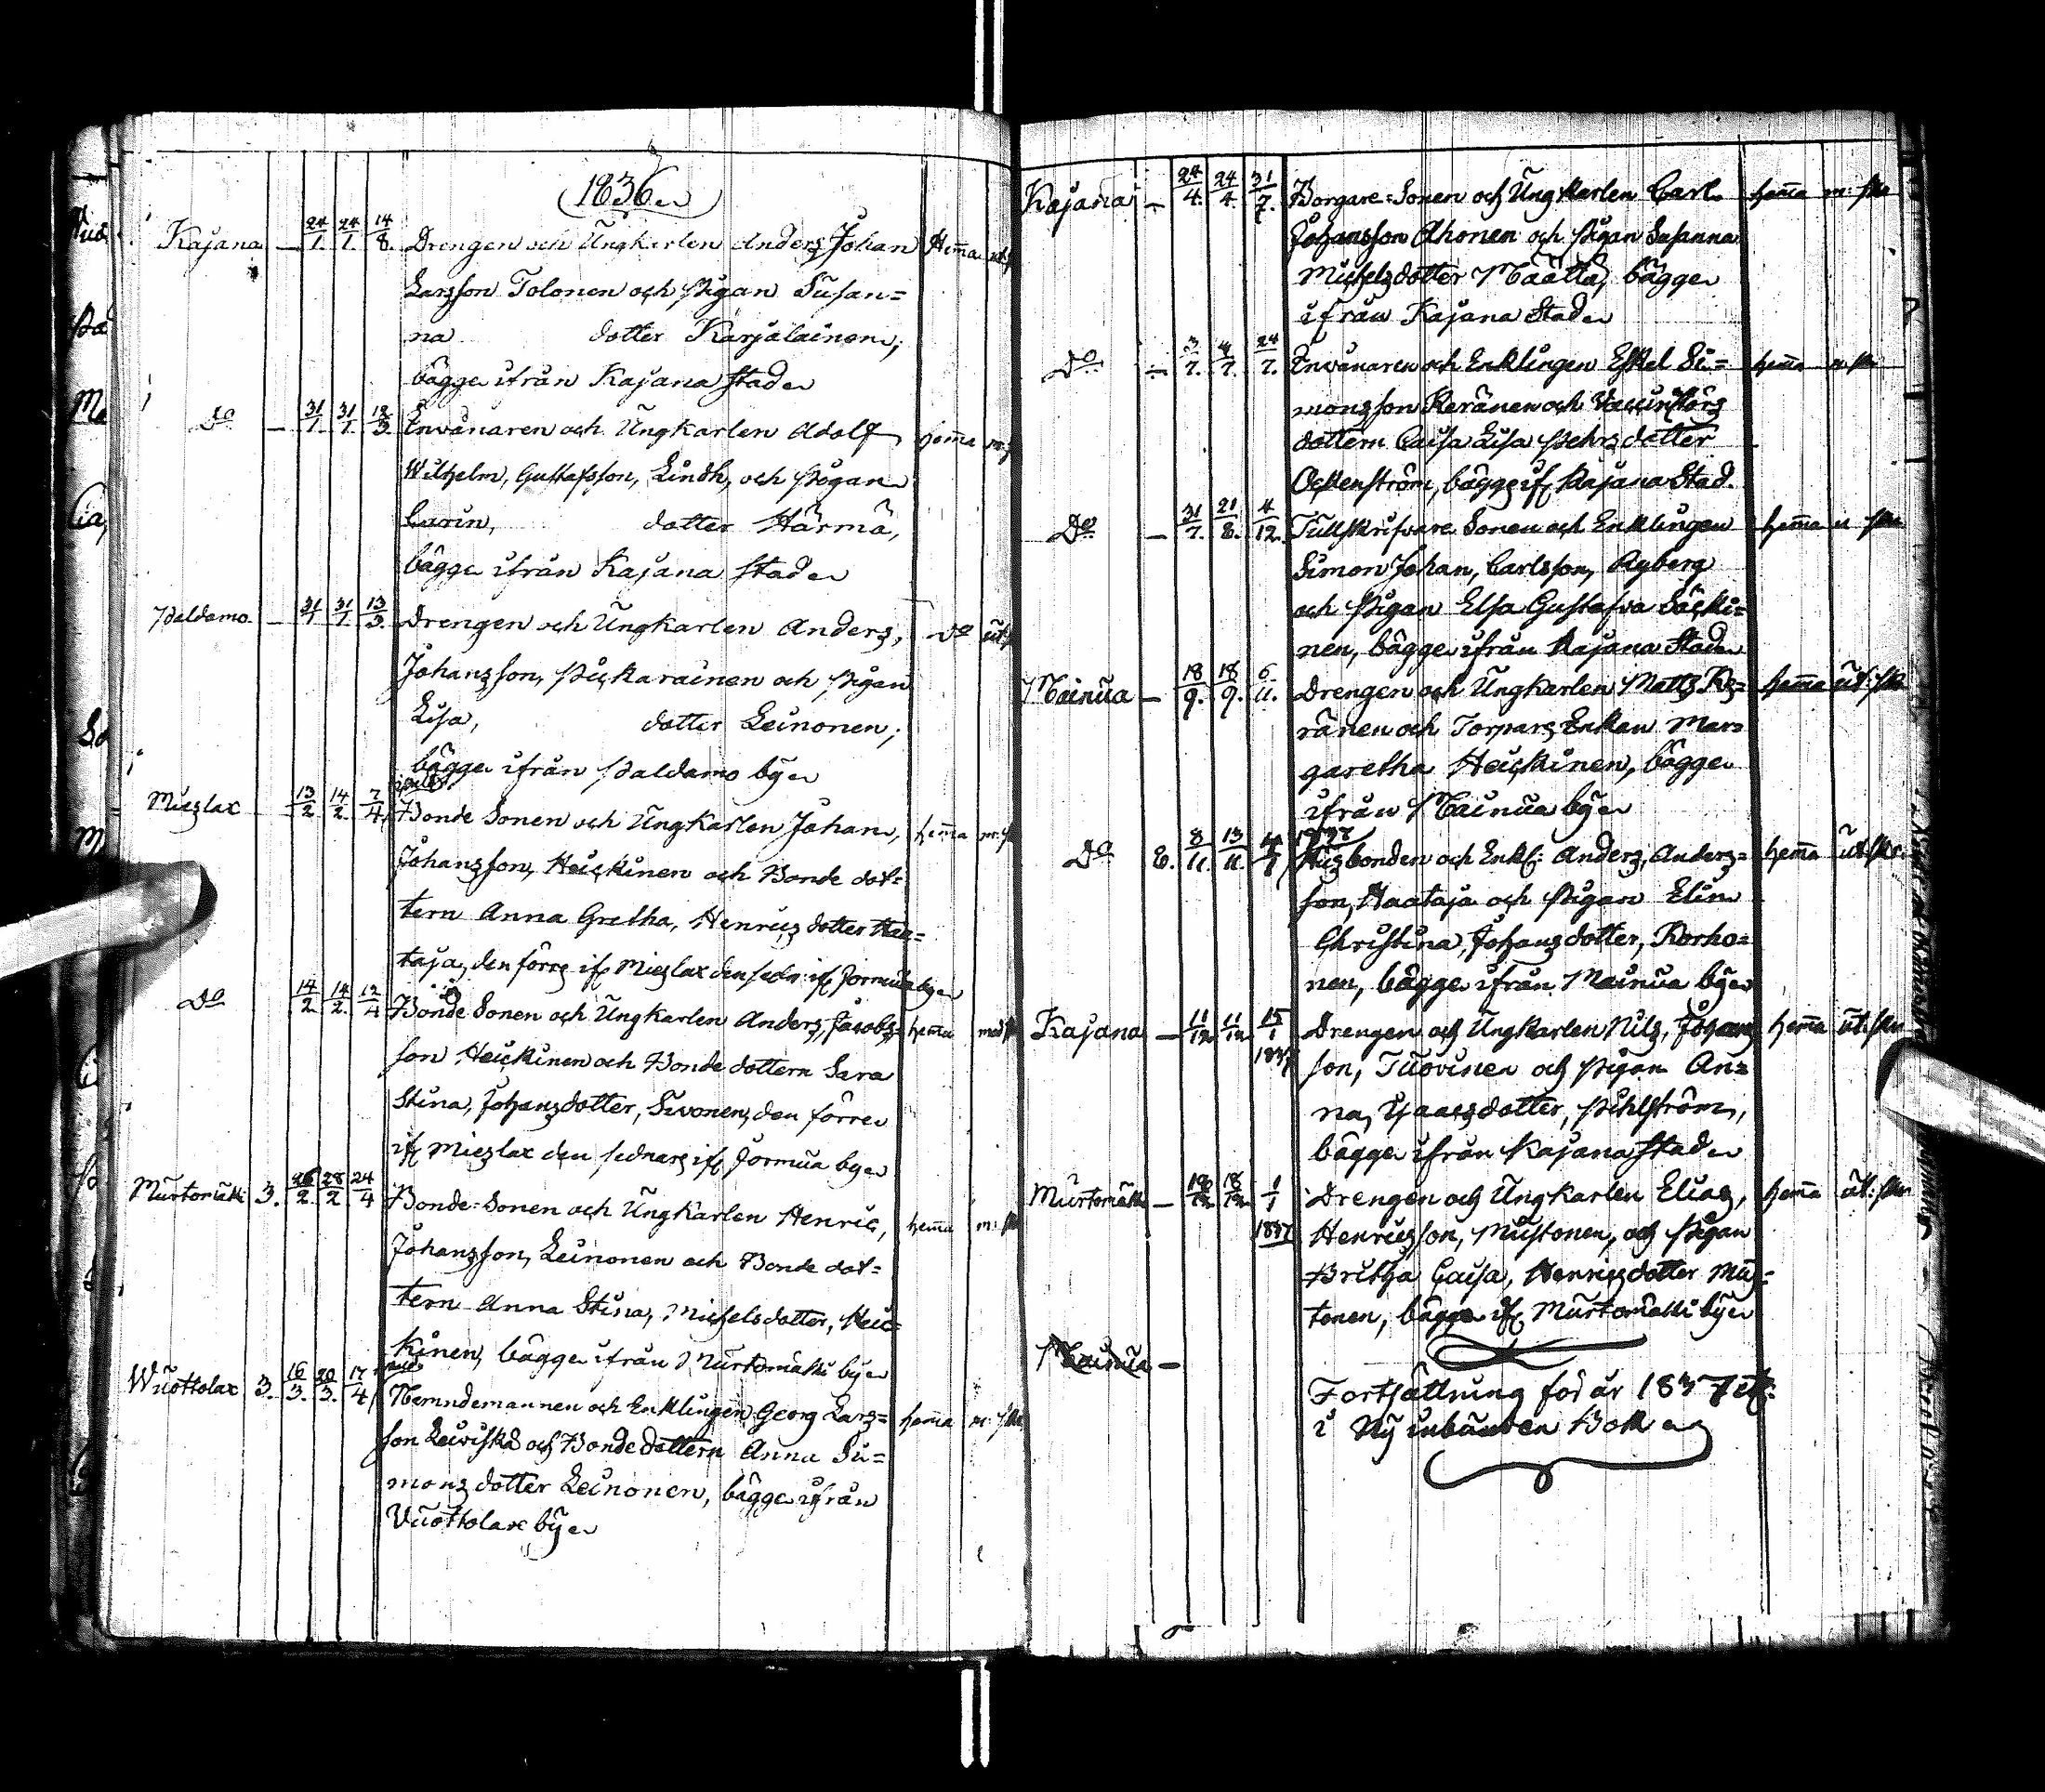 1836
Kajana — 24/1. 24/1. 14/8. Drengen och Ungkarlen Anders Johan Hemma
Larsson Tolonen och Pigan Susan=
na dotter Karjalainen,
bägge ifrån Kajana Stad
Do — 31/1. 31/1. 13/3. Envånaren och Ungkarlen Adolf hemma
Wilhelm, Gustafsson, Lindh, och Pigan
Carin, dotter Härmä,
bägge ifrån Kajana Stad
Paldamo — 31/1. 31/1. 13/3. Drengen och Ungkarlen Anders, Do ut
Johansson, Pickarainen och Pigan
Lisa, dotter Leinonen,
bägge ifrån Paldamo by
Mieslax 13/2 14/2. 7/4 Bonde Sonen och Ungkarlen Johan, hemma
Johansson, Heickinen och Bonde dot=
tern Anna Gretha, Henricsdotter Haa=
taja, den förre if Mieslax den sedn: if Jormua by
Do 14/2. 14/2. 12/4 Bonde Sonen och Ungkarlen Anders, Jacobs= hemma
son Heickinen och Bonde dottern Sara
Stina, Johansdotter, Sivonen, den förre
if Mieslax den sednare if Jormua by
Murtomäki 3. 26/2. 28/2. 24/4 Bonde-Sonen och Ungkarlen Henric, hemma
Johansson, Leinonen och Bonde dot=
tern Anna Stina, Michelsdotter, Heic=
kinen, bägge ifrån Murtomäki by
Wuottolax 3. 16/3. 20/3. 17/4 Nemndemannen och Enklingen Georg Lars= hemma
son Leiviskä och Bondedottern Anna Si=
mons dotter Leinonen, bägge ifrån
Vuottolax by
Kajana — 24/4. 24/4. 31/7. Borgare-Sonen och Ungkarlen Carl hemma
Johansson Ahonen och Pigan Susanna
Michelsdotter Määttä, bägge
ifrån Kajana Stad
Do — 3/7. 4/7. 24/7. Envånaren och Enklingen Eskel Si= hemma
monsson Keränen och
dottern Caisa Lisa Pehrsdotter
Ockenström, bägge if Kajana Stad.
Do — 31/7. 21/8. 4/12. Tullskrifvare Sonen och Enklingen hemma
Simon Johan, Carlsson, Ryberg
och Pigan Elsa Gustafva Säcki=
nen, bägge ifrån Kajana Stad
Mainua — 18/9. 18/9. 6/11. Drengen och Ungkarlen Matts Ke= hemma
ränen och Torpars Enkan Mar=
garetha Heickinen, bägge
ifrån Mainua by
1837
Do 8/11. 13/11. Husbonden och Enkl: Anders, Anders= hemma
son, Haataja och Pigan Elin
Christina, Johansdotter, Korho=
nen, bägge ifrån Mainua by
Kajana — 11/12 11/12 15/1 Drengen och Ungkarlen Nils, Johans hemma
1837 son, Tuovinen och Pigan An=
na, Isaacsdotter, Pihlström,
bägge ifrån Kajana Stad
Murtomäki — 18/12 18/12 1/1 Drengen och Ungkarlen Elias, hemma
1837 Henricsson, Mustonen, och Pigan
Britha Caisa, Henricsdotter Mus=
tonen, bägge if Murtomäki by
Mainua —
Fortsättning för år 1837 etc.
i Ny inbunden Bok